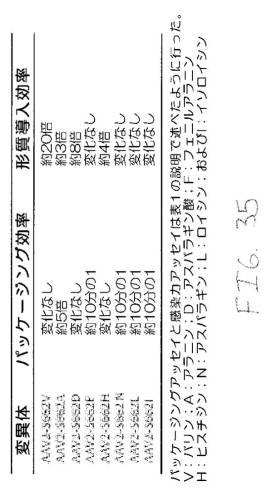 変異体 パッケージング効率 形質導入効率
AAV2-S662V 変化なし 約20倍
AAV2-S662A 約5倍 約3倍
AAV2-S662D 変化なし 約8倍
AAV2-S662F 約10分の1 変化なし
AAV2-S662H 変化なし 約4倍
AAV2-S662N 約10分の1 変化なし
AAV2-S662L 約10分の1 変化なし
AAV2-S662I 約10分の1 変化なし
パッケージングアッセイと感染力アッセイは表1の説明で述べたように行った。
V：バリン；A：アラニン；D：アスパラギン酸；F：フェニルアラニン
H：ヒスチジン；N：アスパラギン；L：ロイシン；およびI：イソロイシン
FIG. 35